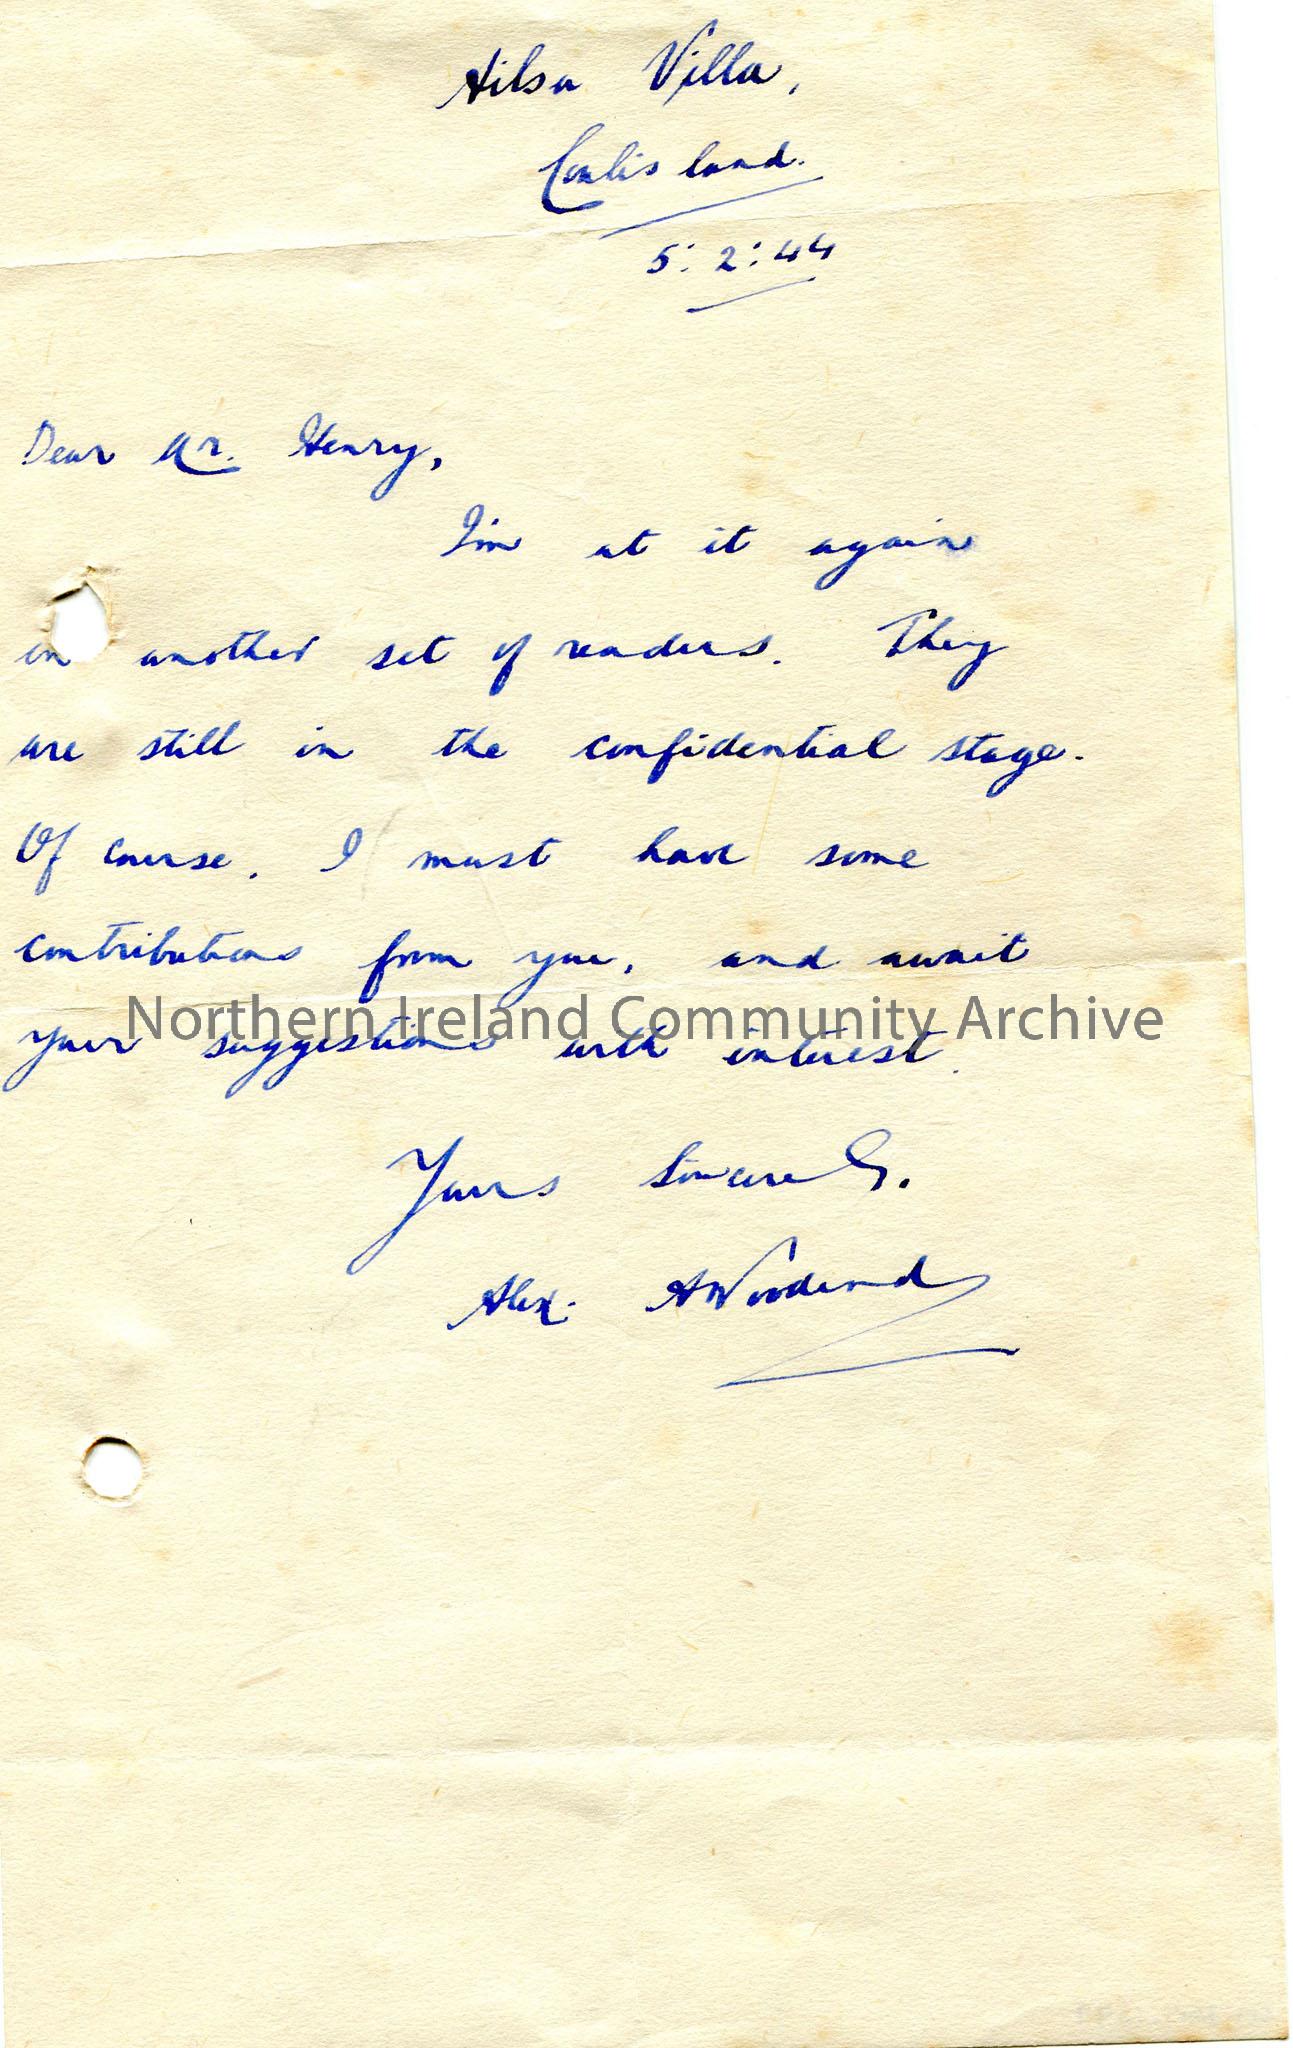 Ailsa Villa,
Coalisland.
5:2:44
Dear Mr. Henry,
I'm at it again
in another set of readers. They
are still in the confidential stage.
Of course, I must have some
contributions from you, and await
Northern Ireland Community Archive
your suggestions with interest.
Yours Sincerely.
Alex. A Woodend